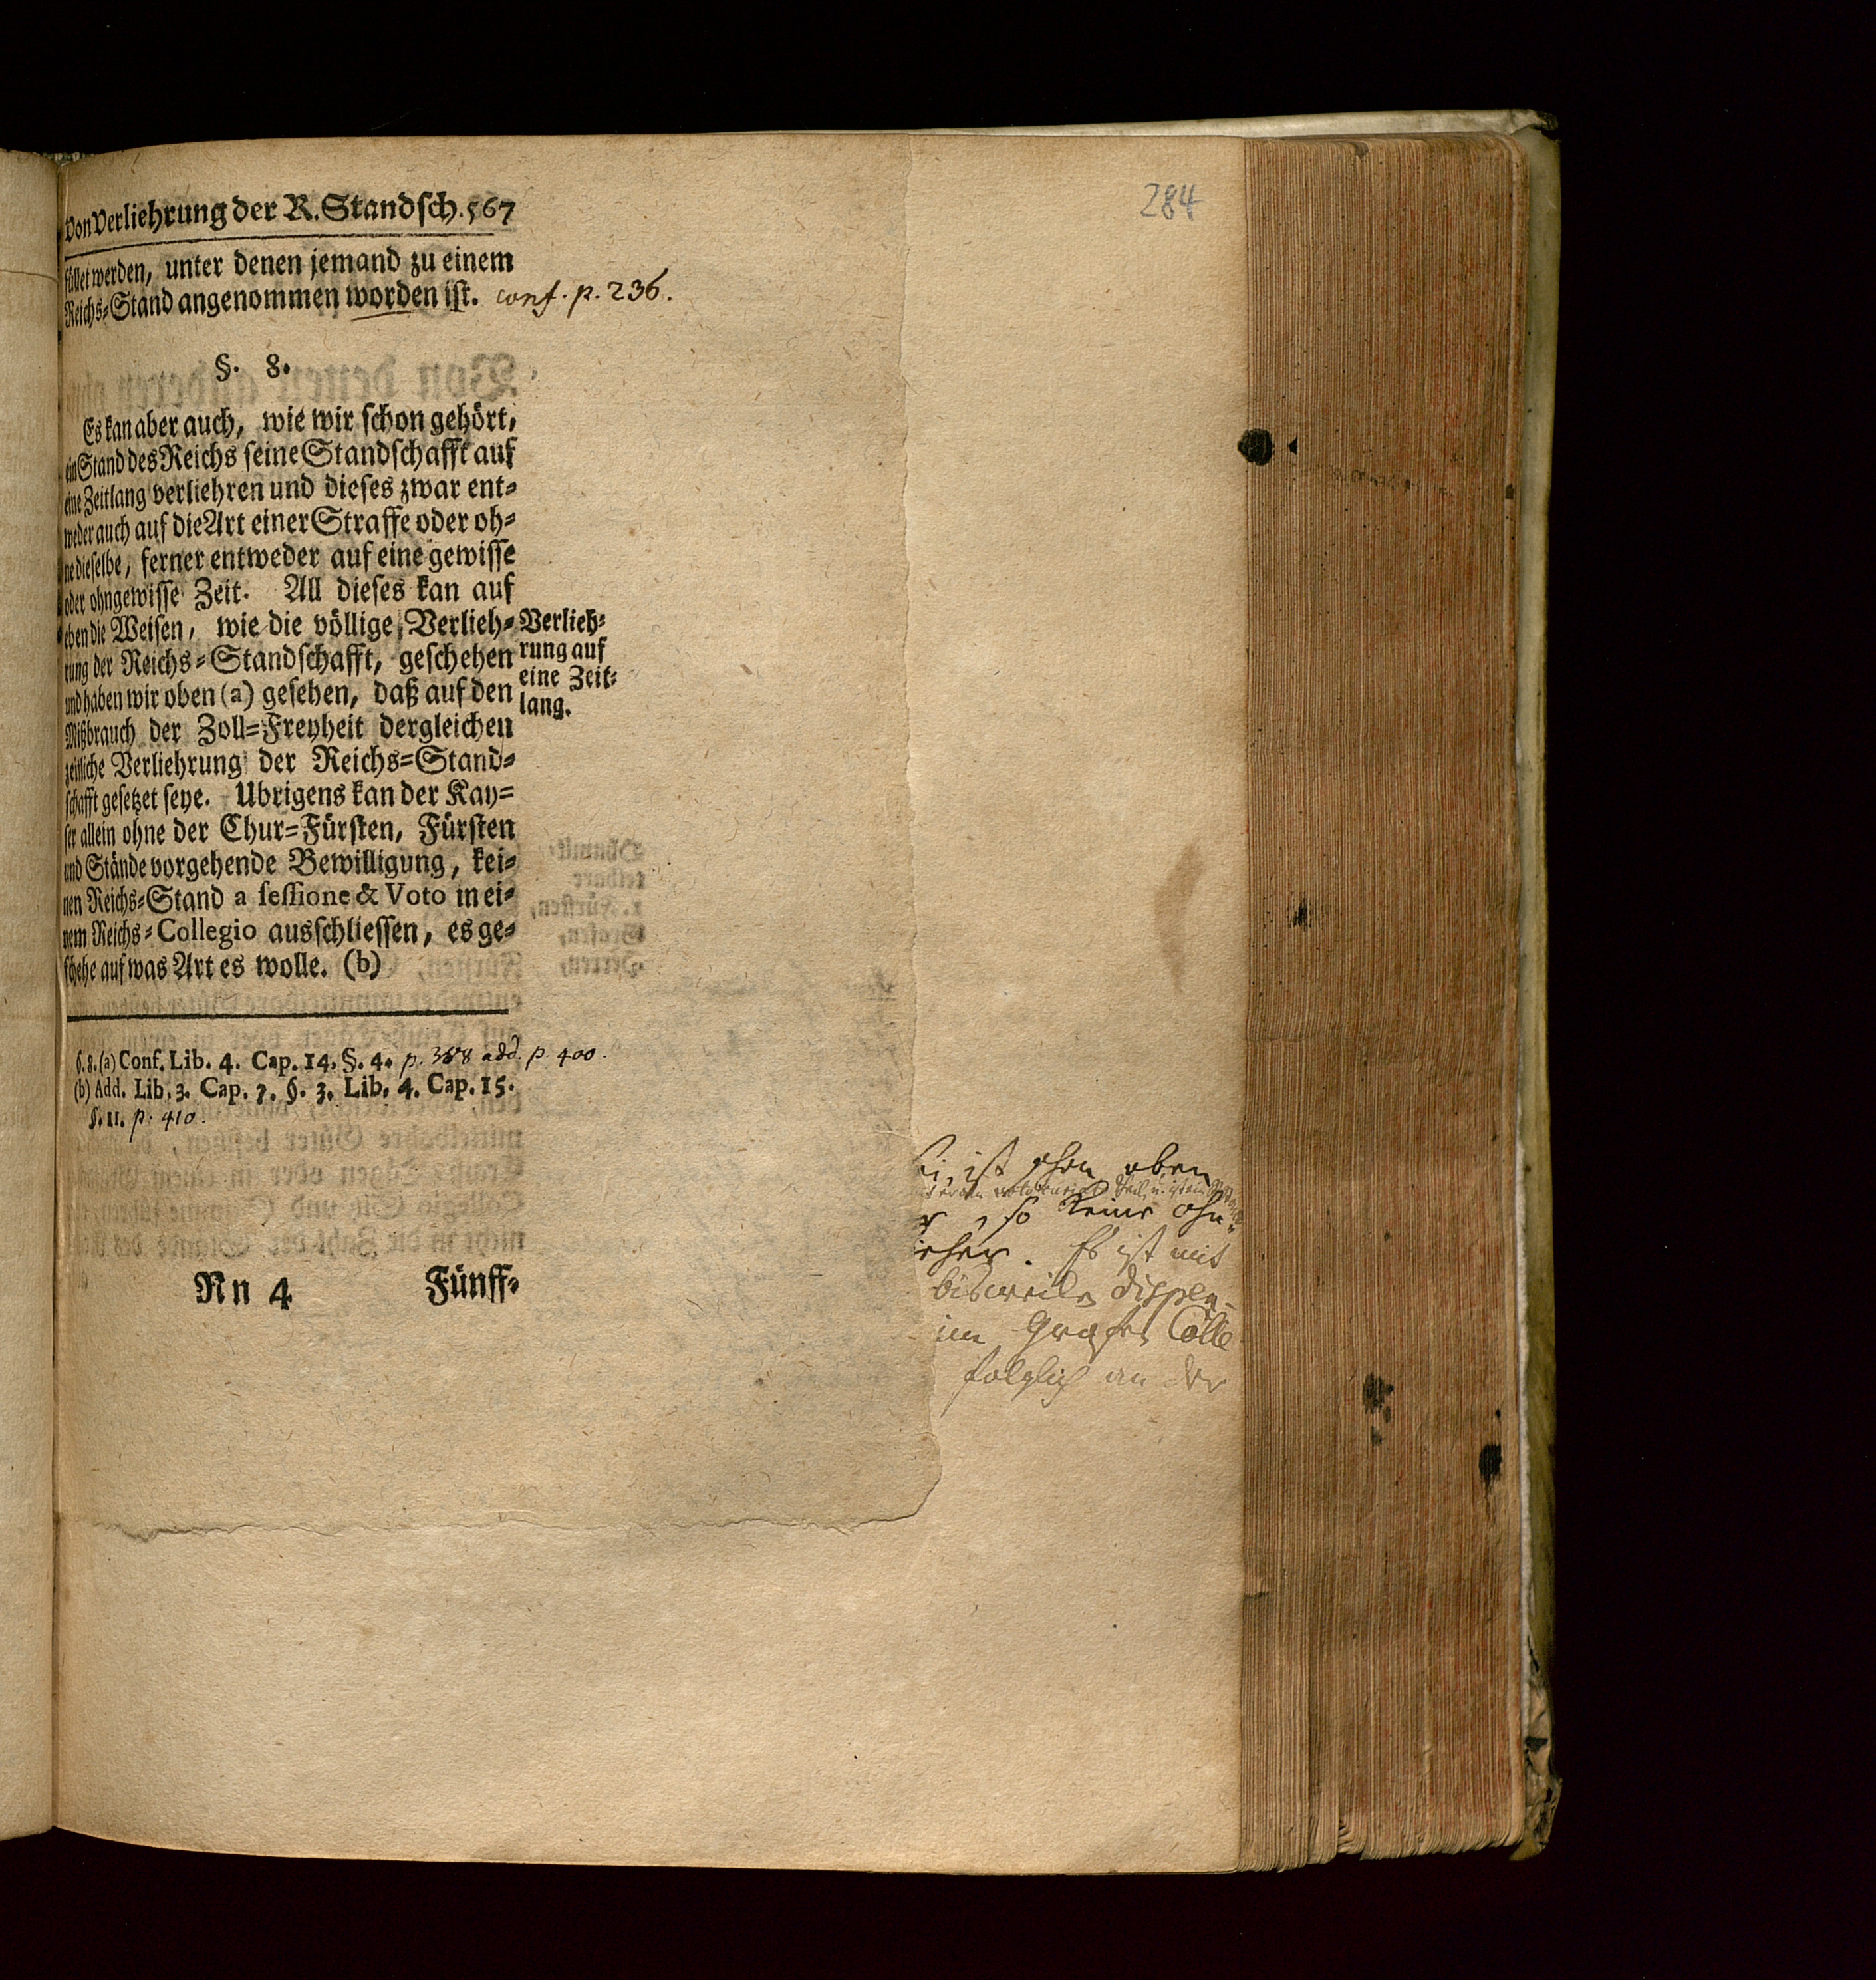 Von Verliehrung der R. Standsch. 567
284
füllet werden, unter denen jemand zu einem
Reichs=Stand angenommen worden ist. conf. p. 236.
§. 8.
Es kan aber auch, wie wir schon gehört,
ein Stand des Reichs seine Standschafft auf
eine Zeitlang verliehren und dieses zwar ent=
weder auch auf die Art einer Straffe oder oh=
ne dieselbe, ferner entweder auf eine gewisse
oder ohngewisse Zeit. All dieses kan auf
eben die Weisen, wie die völlige Verlieh=
rung der Reichs=Standschafft, geschehen
und haben wir oben (a) gesehen, daß auf den
Mißbrauch der Zoll=Freyheit dergleichen
zeitliche Verliehrung der Reichs=Stand=
schafft gesetzet seye. Ubrigens kan der Kay=
ser allein ohne der Chur=Fürsten, Fürsten
und Stände vorgehende Bewilligung, kei=
nen Reichs=Stand a sessione & Voto in ei=
nem Reichs=Collegio ausschliessen, es ge=
schehe auf was Art es wolle. (b)
Verlieh=
rung auf
eine Zeit=
lang.
§. 8. (a) Conf. Lib. 4. Cap. 14. §. 4. p. 368 add. p. 400.
(b) Add. Lib. 3. Cap. 7. §. 3. Lib. 4. Cap. 15.
§. 11. p. 410.
Nn 4 Fünff=
ist oben
so keine
Es ist mit
bisweilen
im Grafen Colle
folglich an der